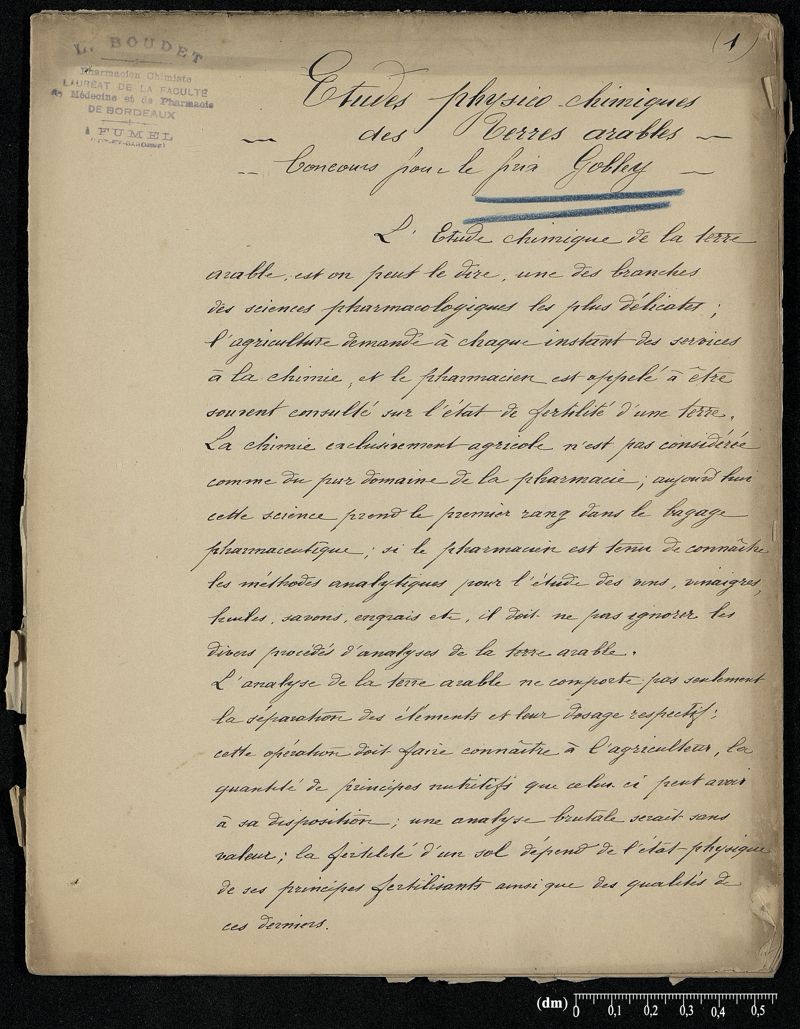 (1)
L. BOUDET
Pharmacien Chimiste
LAURÉAT DE LA FACULTÉ
de Médecine et de Pharmacie
DE BORDEAUX
A FUMEL
(LOT-ET-GARONNE)
Etudes physico-chimiques
des Terres arables
Concours pour le prix Gobley
L'Etude chimique de la terre
arable, est on peut le dire, une des branches
des sciences pharmacologiques les plus délicates;
l'agriculture demande à chaque instant des services
à la chimie, et le pharmacien est appelé à être
souvent consulté sur l'état de fertilité d'une terre.
La chimie exclusivement agricole n'est pas considérée
comme du pur domaine de la pharmacie; aujourd'hui
cette science prend le premier rang dans le bagage
pharmaceutique; si le pharmacien est tenu de connaître
les méthodes analytiques pour l'étude des vins, vinaigres,
huiles, savons, engrais etc, il doit ne pas ignorer les
divers procédés d'analyses de la terre arable.
L'analyse de la terre arable ne comporte pas seulement
la séparation des éléments et leur dosage respectif;
cette opération doit faire connaître à l'agriculteur, la
quantité de principes nutritifs que celui ci peut avoir
à sa disposition; une analyse brutale serait sans
valeur; la fertilité d'un sol dépend de l'état physique
de ses principes fertilisants ainsi que des qualités de
ces derniers.
(dm) 0 0,1 0,2 0,3 0,4 0,5